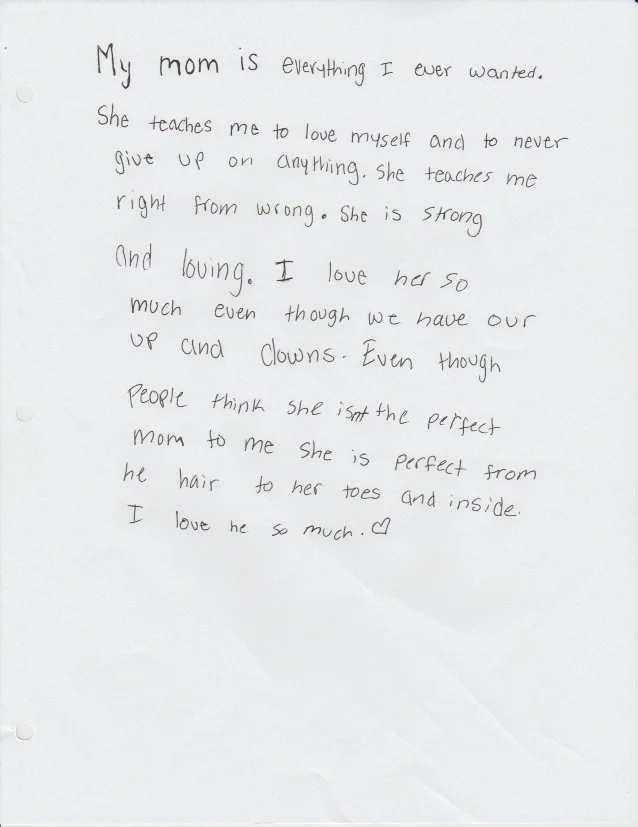 My mom is everything I ever wanted.
She teaches me to love myself and to never
give up on anything. She teaches me
right from wrong. She is strong
and loving. I love her so
much even though we have our
up and downs. Even though
People think she isnt the perfect
mom to me she is perfect from
he hair to her toes and inside.
I love he so much. ♡